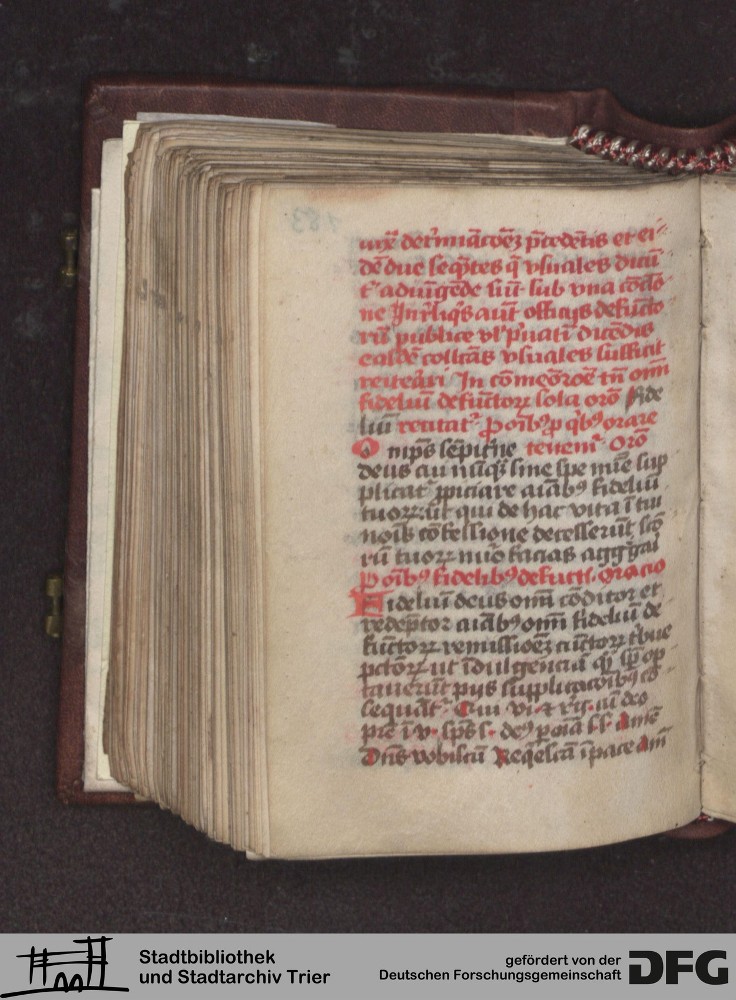 iuxͣ det'miācōeꝫ p̄cedētis et ei
dē due seq̄tes q̄ vsuales dicū
t' adiūgēde sūt sub vna cōclo
ne In reliq̄s aūt officijs defūcto
rū publice vl' p'uatī dicēdis
easdē collcās vsuales sufficit
reit'ari In cōmeōroē tn̄ om̄
fidelium defūctorꝝ sola orō fide
lium recitat' Pro oībꝰ p̄ q̄bꝰ orare
O mp̄s sēpit'ne tenem' Orō
deus cui nūq̄ sine spe mīe sup
plicat' ꝓpiciare aīabꝰ fideliū
tuorꝝ ut qui de hac vita ī tui
noīs cōfessione decesserūt scō
rū tuorꝝ nūo facias aggͣgͣi
P oībꝰ fidelibꝰ defūct. Oracio
Fideliū deus om̄ cōditor et
redēptor aīabꝰ om̄ fideliū de
fūctorꝝ remissioēꝫ cūctorꝝ tribue
pctōrꝝ ut īdulgenciā q̄ sp̄ op
tauerūt pijs supplicacōibꝰ cō
sequāt' Qui vi. ⁊ reg. cū deo
pr̄e ī v. sp̄s s. deꝰ p oīa s. s. amē
Dn̄s vobiscū Reqͥescā ī pace am̄
Stadtbibliothek
und Stadtarchiv Trier
gefördert von der
Deutschen Forschungsgemeinschaft
DFG